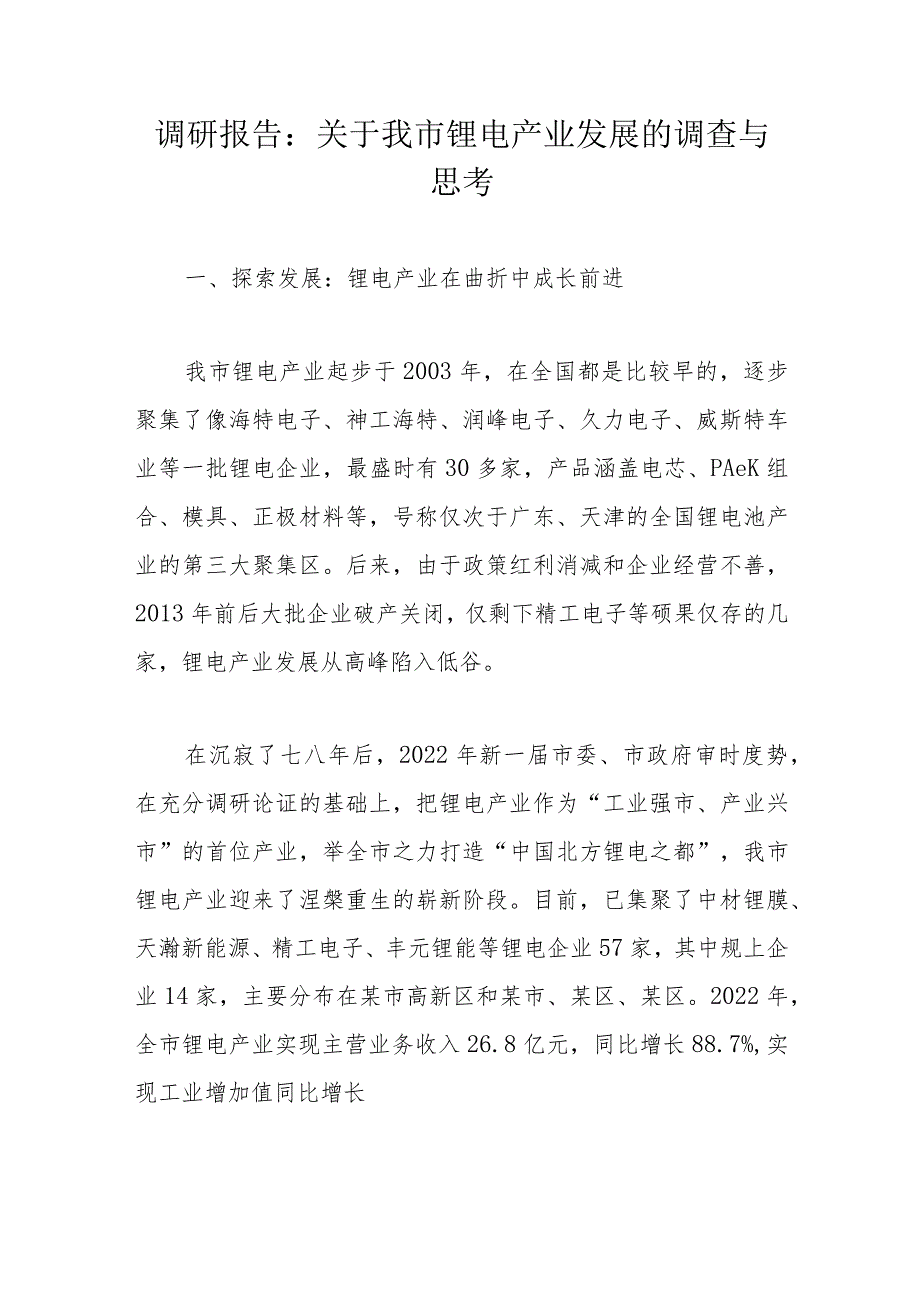 调研报告：关于我市锂电产业发展的调查与
思考
一、探索发展：锂电产业在曲折中成长前进
我市锂电产业起步于 2003 年，在全国都是比较早的，逐步
聚集了像海特电子、神工海特、润峰电子、久力电子、威斯特车
业等一批锂电企业，最盛时有 30 多家，产品涵盖电芯、PAeK 组
合、模具、正极材料等，号称仅次于广东、天津的全国锂电池产
业的第三大聚集区。后来，由于政策红利消减和企业经营不善，
2013 年前后大批企业破产关闭，仅剩下精工电子等硕果仅存的几
家，锂电产业发展从高峰陷入低谷。
在沉寂了七八年后，2022 年新一届市委、市政府审时度势，
在充分调研论证的基础上，把锂电产业作为“工业强市、产业兴
市”的首位产业，举全市之力打造“中国北方锂电之都”，我市
锂电产业迎来了涅槃重生的崭新阶段。目前，已集聚了中材锂膜、
天瀚新能源、精工电子、丰元锂能等锂电企业 57 家，其中规上企
业 14 家，主要分布在某市高新区和某市、某区、某区。2022 年，
全市锂电产业实现主营业务收入 26.8 亿元，同比增长 88.7%,实
现工业增加值同比增长